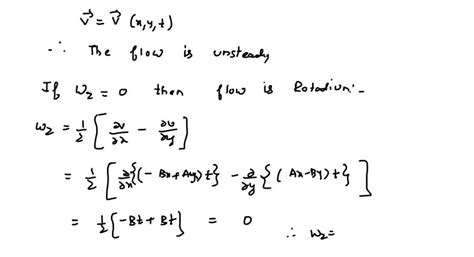 V⃗ = V⃗ (x,y,t)
∴ The flow is unsteady
If ω₂ = 0 then flow is Rotadium'-
ω₂ = 1/2 [∂v/∂x − ∂u/∂y]
= 1/2 [∂/∂x {(−Bx+Ay)t} − ∂/∂y {(Ax−By)t}]
= 1/2 [−Bt + Bt] = 0
∴ ω₂=